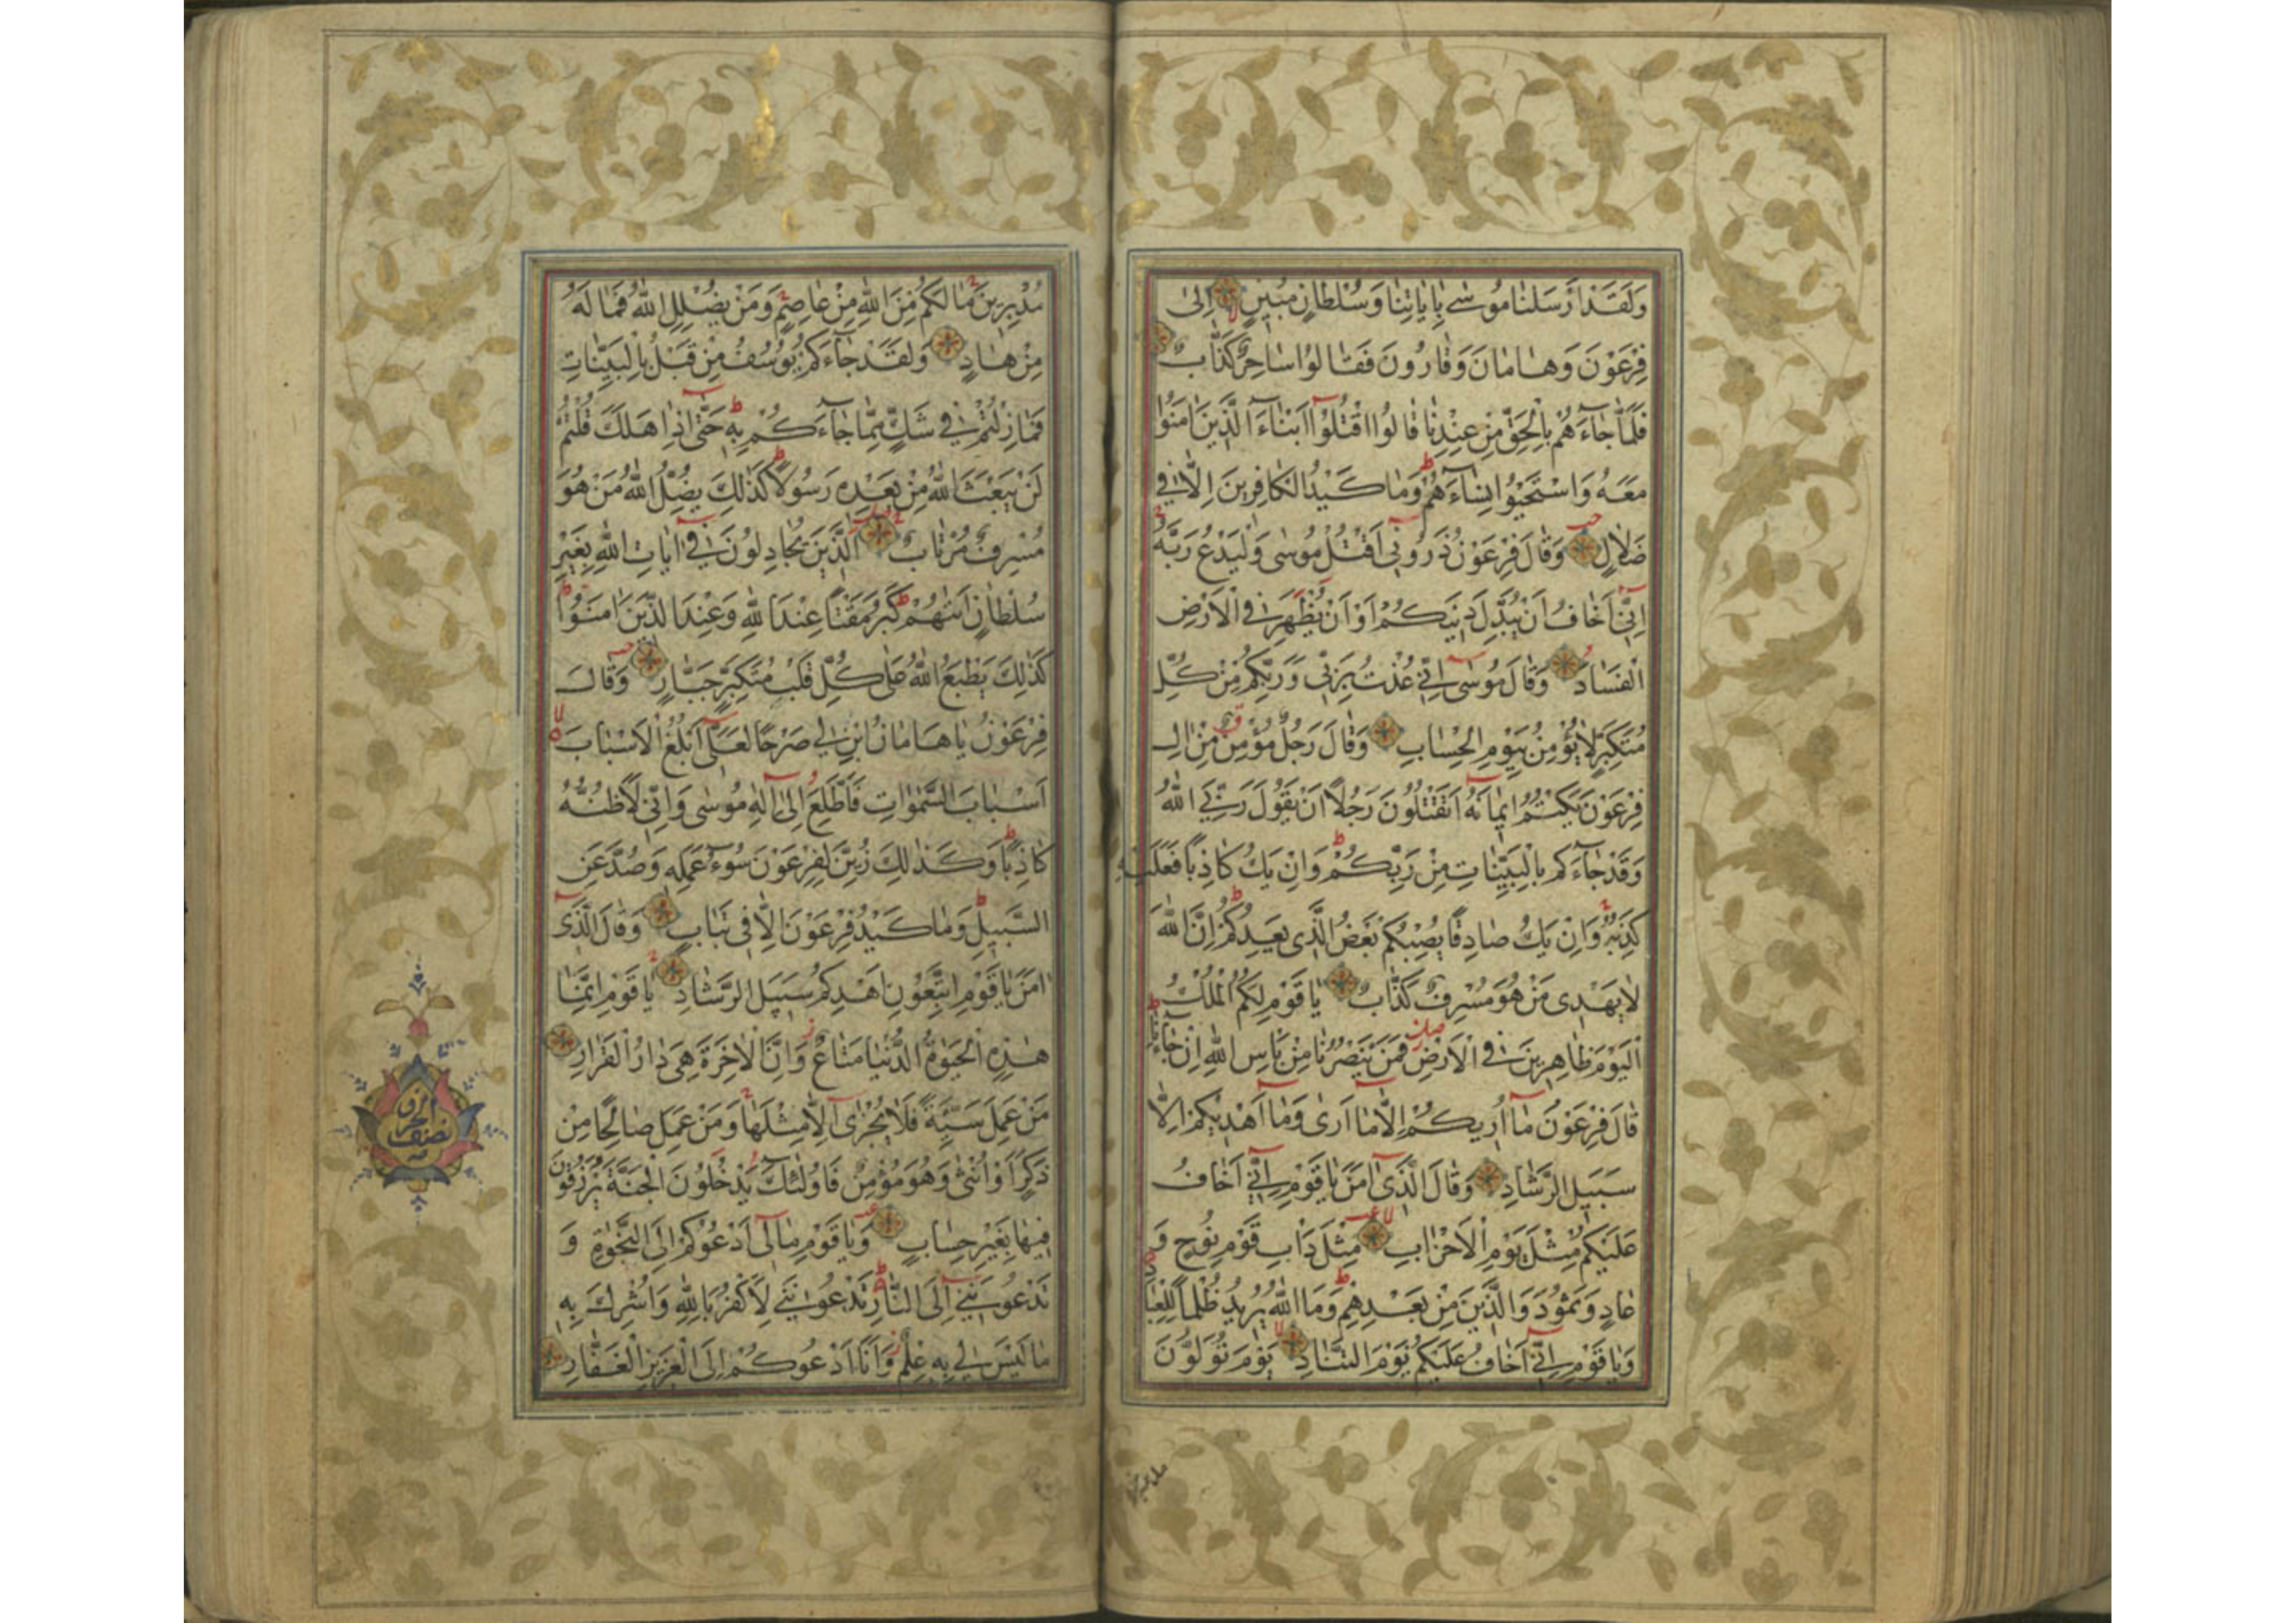 وَلَقَدْ اَرْسَلْنَا مُوسٰى بِاٰيَاتِنَا وَسُلْطَانٍ مُبِينٍ اِلٰى
فِرْعَوْنَ وَهَامَانَ وَقَارُونَ فَقَالُوا سَاحِرٌ كَذَّابٌ
فَلَمَّا جَآءَهُمْ بِالْحَقِّ مِنْ عِنْدِنَا قَالُوا اقْتُلُوٓا اَبْنَآءَ الَّذِينَ اٰمَنُوا
مَعَهُ وَاسْتَحْيُوا نِسَآءَهُمْ وَمَا كَيْدُ الْكَافِرِينَ اِلَّا فِي
ضَلَالٍ وَقَالَ فِرْعَوْنُ ذَرُونِىٓ اَقْتُلْ مُوسٰى وَلْيَدْعُ رَبَّهُ
اِنِّىٓ اَخَافُ اَنْ يُبَدِّلَ دِينَكُمْ اَوْ اَنْ يُظْهِرَ فِي الْاَرْضِ
الْفَسَادَ وَقَالَ مُوسٰىٓ اِنِّي عُذْتُ بِرَبِّي وَرَبِّكُمْ مِنْ كُلِّ
مُتَكَبِّرٍ لَا يُؤْمِنُ بِيَوْمِ الْحِسَابِ وَقَالَ رَجُلٌ مُؤْمِنٌ مِنْ اٰلِ
فِرْعَوْنَ يَكْتُمُ اِيمَانَهُٓ اَتَقْتُلُونَ رَجُلًا اَنْ يَقُولَ رَبِّيَ اللهُ
وَقَدْ جَآءَكُمْ بِالْبَيِّنَاتِ مِنْ رَبِّكُمْ وَاِنْ يَكُ كَاذِبًا فَعَلَيْهِ
كَذِبُهُ وَاِنْ يَكُ صَادِقًا يُصِبْكُمْ بَعْضُ الَّذِي يَعِدُكُمْ اِنَّ اللهَ
لَا يَهْدِي مَنْ هُوَ مُسْرِفٌ كَذَّابٌ يَا قَوْمِ لَكُمُ الْمُلْكُ
الْيَوْمَ ظَاهِرِينَ فِي الْاَرْضِ فَمَنْ يَنْصُرُنَا مِنْ بَاْسِ اللهِ اِنْ جَآءَنَا
قَالَ فِرْعَوْنُ مَآ اُرِيكُمْ اِلَّا مَآ اَرٰى وَمَآ اَهْدِيكُمْ اِلَّا
سَبِيلَ الرَّشَادِ وَقَالَ الَّذِىٓ اٰمَنَ يَا قَوْمِ اِنِّىٓ اَخَافُ
عَلَيْكُمْ مِثْلَ يَوْمِ الْاَحْزَابِ مِثْلَ دَاْبِ قَوْمِ نُوحٍ وَ
عَادٍ وَثَمُودَ وَالَّذِينَ مِنْ بَعْدِهِمْ وَمَا اللهُ يُرِيدُ ظُلْمًا لِلْعِبَادِ
وَيَا قَوْمِ اِنِّىٓ اَخَافُ عَلَيْكُمْ يَوْمَ التَّنَادِ يَوْمَ تُوَلُّونَ
مُدْبِرِينَ مَا لَكُمْ مِنَ اللهِ مِنْ عَاصِمٍ وَمَنْ يُضْلِلِ اللهُ فَمَا لَهُ
مِنْ هَادٍ وَلَقَدْ جَآءَكُمْ يُوسُفُ مِنْ قَبْلُ بِالْبَيِّنَاتِ
فَمَا زِلْتُمْ فِي شَكٍّ مِمَّا جَآءَكُمْ بِهِ حَتّٰىٓ اِذَا هَلَكَ قُلْتُمْ
لَنْ يَبْعَثَ اللهُ مِنْ بَعْدِهِ رَسُولًا كَذٰلِكَ يُضِلُّ اللهُ مَنْ هُوَ
مُسْرِفٌ مُرْتَابٌ اَلَّذِينَ يُجَادِلُونَ فِىٓ اٰيَاتِ اللهِ بِغَيْرِ
سُلْطَانٍ اَتٰهُمْ كَبُرَ مَقْتًا عِنْدَ اللهِ وَعِنْدَ الَّذِينَ اٰمَنُوا
كَذٰلِكَ يَطْبَعُ اللهُ عَلٰى كُلِّ قَلْبِ مُتَكَبِّرٍ جَبَّارٍ وَقَالَ
فِرْعَوْنُ يَا هَامَانُ ابْنِ لِي صَرْحًا لَعَلِّىٓ اَبْلُغُ الْاَسْبَابَ
اَسْبَابَ السَّمٰوَاتِ فَاَطَّلِعَ اِلٰىٓ اِلٰهِ مُوسٰى وَاِنِّي لَاَظُنُّهُ
كَاذِبًا وَكَذٰلِكَ زُيِّنَ لِفِرْعَوْنَ سُوٓءُ عَمَلِهِ وَصُدَّ عَنِ
السَّبِيلِ وَمَا كَيْدُ فِرْعَوْنَ اِلَّا فِي تَبَابٍ وَقَالَ الَّذِىٓ
اٰمَنَ يَا قَوْمِ اتَّبِعُونِ اَهْدِكُمْ سَبِيلَ الرَّشَادِ يَا قَوْمِ اِنَّمَا
هٰذِهِ الْحَيٰوةُ الدُّنْيَا مَتَاعٌ وَاِنَّ الْاٰخِرَةَ هِيَ دَارُ الْقَرَارِ
مَنْ عَمِلَ سَيِّئَةً فَلَا يُجْزٰىٓ اِلَّا مِثْلَهَا وَمَنْ عَمِلَ صَالِحًا مِنْ
ذَكَرٍ اَوْ اُنْثٰى وَهُوَ مُؤْمِنٌ فَاُولٰٓئِكَ يَدْخُلُونَ الْجَنَّةَ يُرْزَقُونَ
فِيهَا بِغَيْرِ حِسَابٍ وَيَا قَوْمِ مَا لِىٓ اَدْعُوكُمْ اِلَى النَّجٰوةِ وَ
تَدْعُونَنِىٓ اِلَى النَّارِ تَدْعُونَنِي لِاَكْفُرَ بِاللهِ وَاُشْرِكَ بِهِ
مَا لَيْسَ لِي بِهِ عِلْمٌ وَاَنَا اَدْعُوكُمْ اِلَى الْعَزِيزِ الْغَفَّارِ
نصف الحزب